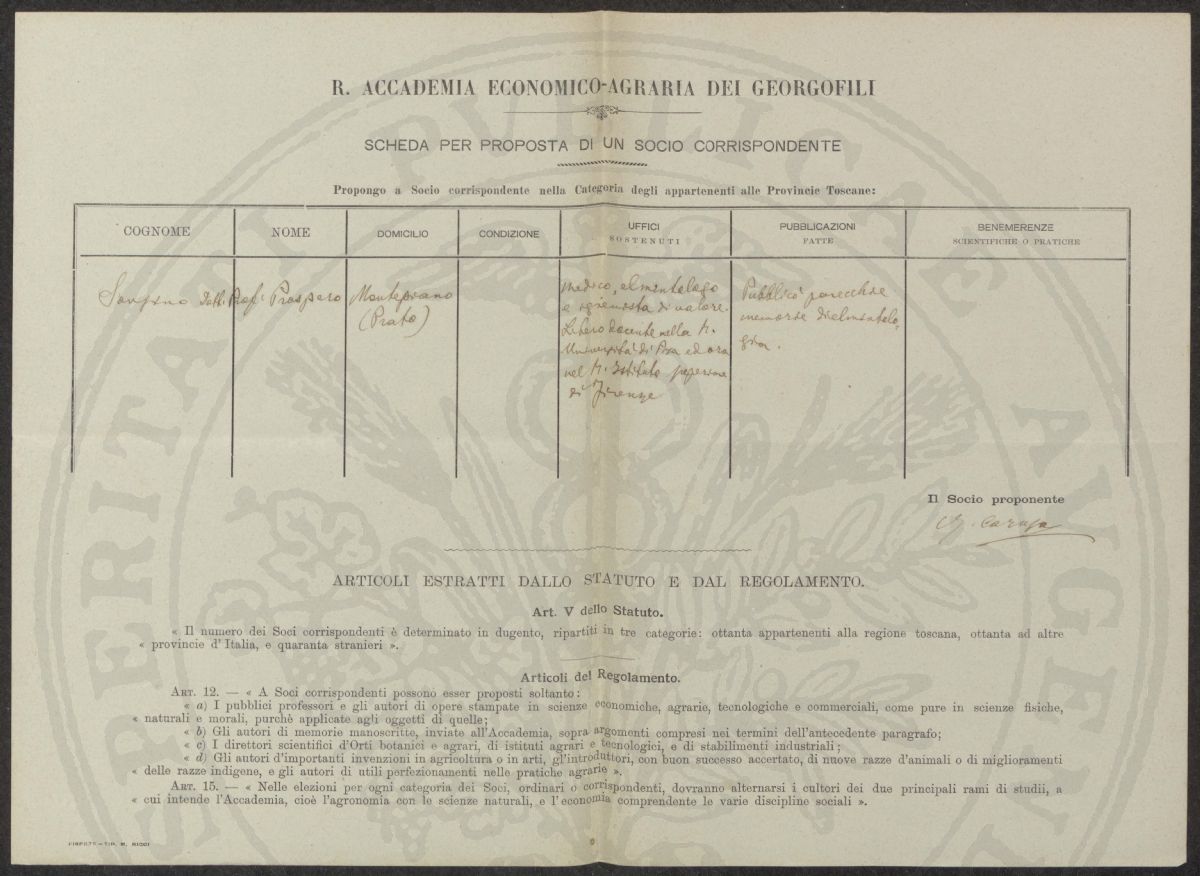 R. ACCADEMIA ECONOMICO-AGRARIA DEI GEORGOFILI
SCHEDA PER PROPOSTA DI UN SOCIO CORRISPONDENTE
Propongo a Socio corrispondente nella Categoria degli appartenenti alle Provincie Toscane:
COGNOME
NOME
DOMICILIO
CONDIZIONE
UFFICI
SOSTENUTI
PUBBLICAZIONI
FATTE
BENEMERENZE
SCIENTIFICHE O PRATICHE
Sonsino Dott. Prof. Prospero
Montepiano
(Prato)
medico, elmintologo
e igienista di valore.
Libero docente nella R.
Università di Pisa ed ora
nel R. Istituto superiore
di Firenze
Pubblicò parecchie
memorie di elmintolo-
gia.
Il Socio proponente
G. Caruso
ARTICOLI ESTRATTI DALLO STATUTO E DAL REGOLAMENTO.
Art. V dello Statuto.
« Il numero dei Soci corrispondenti è determinato in dugento, ripartiti in tre categorie: ottanta appartenenti alla regione toscana, ottanta ad altre
« provincie d'Italia, e quaranta stranieri ».
Articoli del Regolamento.
ART. 12. — « A Soci corrispondenti possono esser proposti soltanto:
« a) I pubblici professori e gli autori di opere stampate in scienze economiche, agrarie, tecnologiche e commerciali, come pure in scienze fisiche,
« naturali e morali, purchè applicate agli oggetti di quelle;
« b) Gli autori di memorie manoscritte, inviate all'Accademia, sopra argomenti compresi nei termini dell'antecedente paragrafo;
« c) I direttori scientifici d'Orti botanici e agrari, di istituti agrari e tecnologici, e di stabilimenti industriali;
« d) Gli autori d'importanti invenzioni in agricoltura o in arti, gl'introduttori, con buon successo accertato, di nuove razze d'animali o di miglioramenti
« delle razze indigene, e gli autori di utili perfezionamenti nelle pratiche agrarie ».
ART. 15. — « Nelle elezioni per ogni categoria dei Soci, ordinari o corrispondenti, dovranno alternarsi i cultori dei due principali rami di studii, a
« cui intende l'Accademia, cioè l'agronomia con le scienze naturali, e l'economia comprendente le varie discipline sociali ».
FIRENZE — TIP. M. RICCI
PROSPERITATI PUBLICAE AVGENDAE